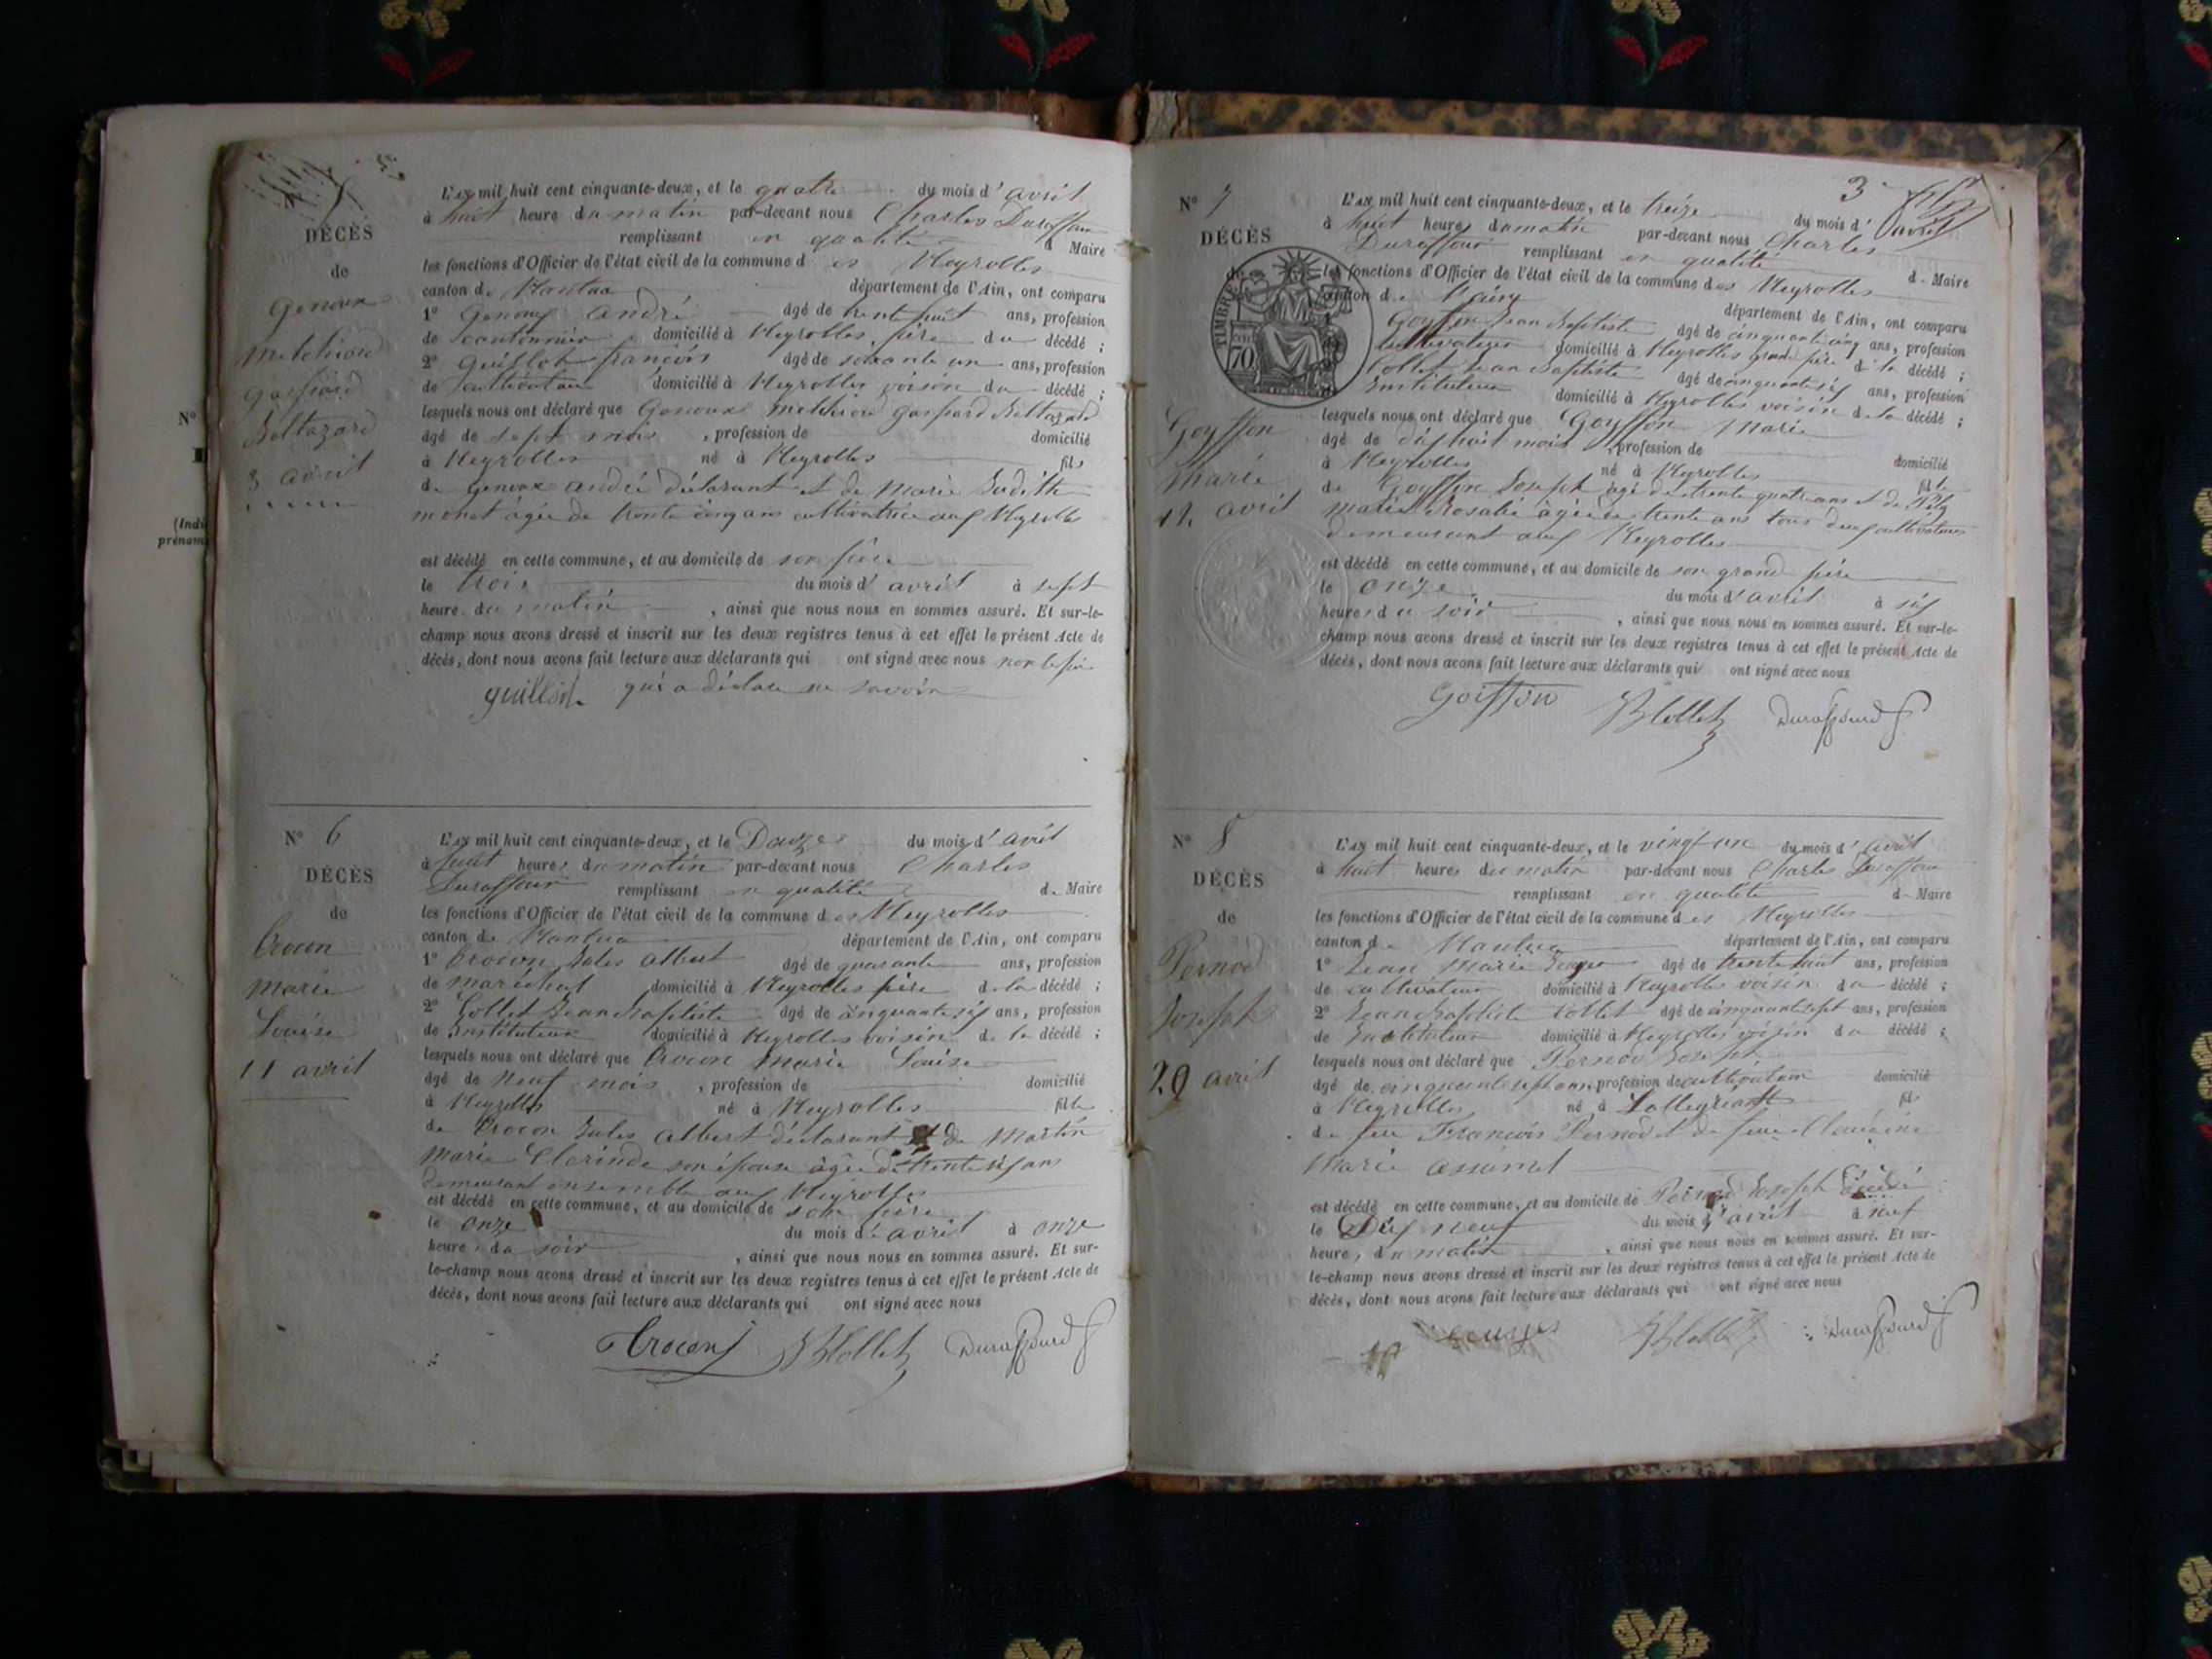 N° 5
DÉCÈS
de
Genoux
Melchior
Gaspard
Baltazard
3 avril
L'AN mil huit cent cinquante-deux, et le quatre du mois d'avril
à huit heure du matin par-devant nous Charles Duraffour
remplissant en qualité d Maire
les fonctions d'Officier de l'état civil de la commune des Neyrolles
canton de Nantua département de l'Ain, ont comparu
1° Genoux André âgé de trente huit ans, profession
de cantonnier domicilié à Neyrolles, père du décédé ;
2° Guillot françois âgé de soixante un ans, profession
de cultivateur domicilié à Neyrolles voisin du décédé ;
lesquels nous ont déclaré que Genoux Melchior gaspard Baltazard
âgé de sept mois , profession de domicilié
à Neyrolles né à Neyrolles fils
de Genoux andré déclarant et de Marie Judith
monet âgée de trente cinq ans cultivatrice aux Neyrolles
est décédé en cette commune, et au domicile de son père
le trois du mois d'avril à sept
heure du matin , ainsi que nous nous en sommes assuré. Et sur-le-
champ nous avons dressé et inscrit sur les deux registres tenus à cet effet le présent Acte de
décès, dont nous avons fait lecture aux déclarants qui ont signé avec nous non le père
guillot qui a déclaré ne savoir
N° 6
DÉCÈS
de
Crocon
Marie
Louise
11 avril
L'AN mil huit cent cinquante-deux, et le Douze du mois d'avril
à huit heures du matin par-devant nous Charles
Duraffour remplissant en qualité de Maire
les fonctions d'Officier de l'état civil de la commune des Neyrolles
canton de Nantua département de l'Ain, ont comparu
1° Crocon Jules Albert âgé de quarante ans, profession
de maréchal domicilié à Neyrolles père de la décédé ;
2° Collet Jean Baptiste âgé de cinquante six ans, profession
de Instituteur domicilié à Neyrolles voisin de la décédé ;
lesquels nous ont déclaré que Crocon Marie Louise
âgé de neuf mois , profession de domicilié
à Neyrolles né à Neyrolles fille
de Crocon Jules Albert déclarant et de Martin
Marie Clarinde son épouse âgée de trente six ans
demeurant ensemble aux Neyrolles
est décédé en cette commune, et au domicile de son père
le onze du mois d'avril à onze
heure du soir , ainsi que nous nous en sommes assuré. Et sur-
le-champ nous avons dressé et inscrit sur les deux registres tenus à cet effet le présent Acte de
décès, dont nous avons fait lecture aux déclarants qui ont signé avec nous
Crocon JBCollet Duraffourd
3
N° 7
DÉCÈS
de
TIMBRE
70
Goyffon
Marie
11 avril
L'AN mil huit cent cinquante-deux, et le treize du mois d'avril
à huit heures du matin par-devant nous Charles
Duraffour remplissant en qualité de Maire
les fonctions d'Officier de l'état civil de la commune des Neyrolles
canton de département de l'Ain, ont comparu
Goyffon Jean Baptiste âgé de cinquante cinq ans, profession
cultivateur domicilié à Neyrolles grand père de la décédé ;
Collet Jean Baptiste âgé de cinquante six ans, profession
Instituteur domicilié à Neyrolles voisin de la décédé ;
lesquels nous ont déclaré que Goyffon Marie
âgé de dix huit mois , profession de domicilié
à Neyrolles né à Neyrolles fille
de Goyffon Joseph âgé de trente quatre ans et de
Marie Rosalie âgée de trente ans tous deux cultivateurs
demeurant aux Neyrolles
est décédé en cette commune, et au domicile de son grand père
le onze du mois d'avril à six
heures du soir , ainsi que nous nous en sommes assuré. Et sur-le-
champ nous avons dressé et inscrit sur les deux registres tenus à cet effet le présent Acte de
décès, dont nous avons fait lecture aux déclarants qui ont signé avec nous
goiffon JBCollet Duraffourd
N° 8
DÉCÈS
de
Pernod
Joseph
29 avril
L'AN mil huit cent cinquante-deux, et le vingt un du mois d'avril
à huit heures du matin par-devant nous Charles Duraffour
remplissant en qualité de Maire
les fonctions d'Officier de l'état civil de la commune des Neyrolles
canton de Nantua département de l'Ain, ont comparu
1° Jean Marie âgé de trente huit ans, profession
de cultivateur domicilié à Neyrolles voisin du décédé ;
2° Jean Baptiste Collet âgé de cinquante sept ans, profession
de Instituteur domicilié à Neyrolles voisin du décédé ;
lesquels nous ont déclaré que Pernod Joseph
âgé de cinquante sept ans, profession de cultivateur domicilié
à Neyrolles né à Lalleyriat fils
de feu François Pernod et de feue
Marie
est décédé en cette commune, et au domicile de Pernod Joseph décédé
le Dix neuf du mois d'avril à neuf
heure, du matin , ainsi que nous nous en sommes assuré. Et sur-
le-champ nous avons dressé et inscrit sur les deux registres tenus à cet effet le présent Acte de
décès, dont nous avons fait lecture aux déclarants qui ont signé avec nous
JBCollet Duraffourd